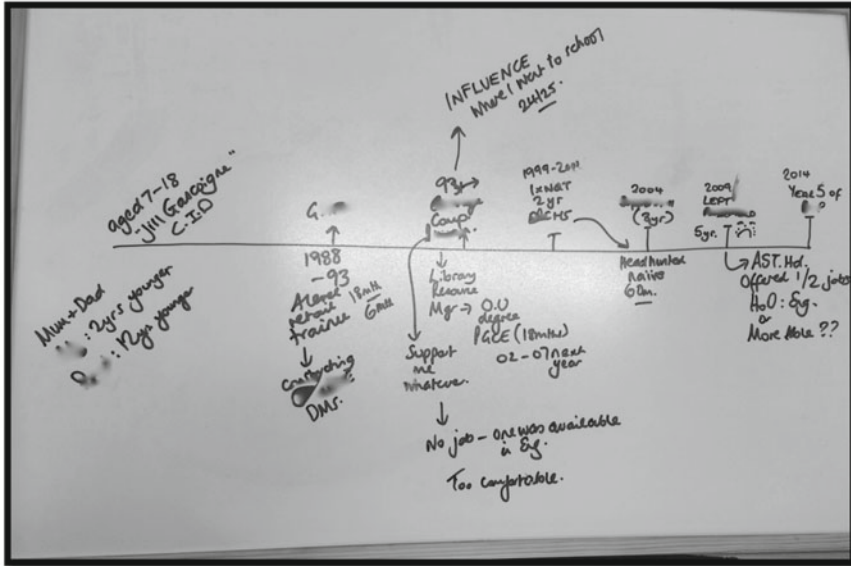 aged 7-18
"Jill Gascoigne"
C.I.D
Mum + Dad
: 2yrs younger
: 12yrs younger
G.
1988
-93
retail
trainee
18mth
6mth
Constructing
DMs.
INFLUENCE
Where I went to school
24/25.
93
Comp
Library
Resource
Mgr → O.U
degree
PGCE (18mths)
02-07 next
year
Support
me
whatever.
No job - one was available
in Eng.
Too comfortable.
1999-200
1xNQT
2yr
2004
(3yr)
Headhunted
naive
6Dm.
2009
LEFT
5yr.
AST. Hd.
Offered 1/2 jobs
HoD: Eng.
or
More Able ??
2014
Year 5 of